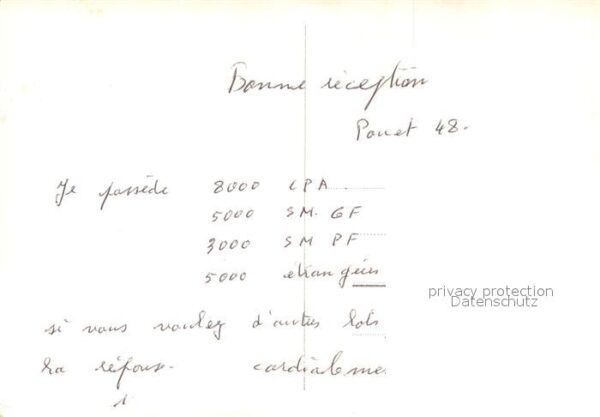 Bonne réception
Pouet 48.
Je possède 8000 CPA
5000 SM. GF
3000 SM PF
5000 étrangères
privacy protection
Datenschutz
si vous voulez d'autres lots
ra réponse. cordialeme